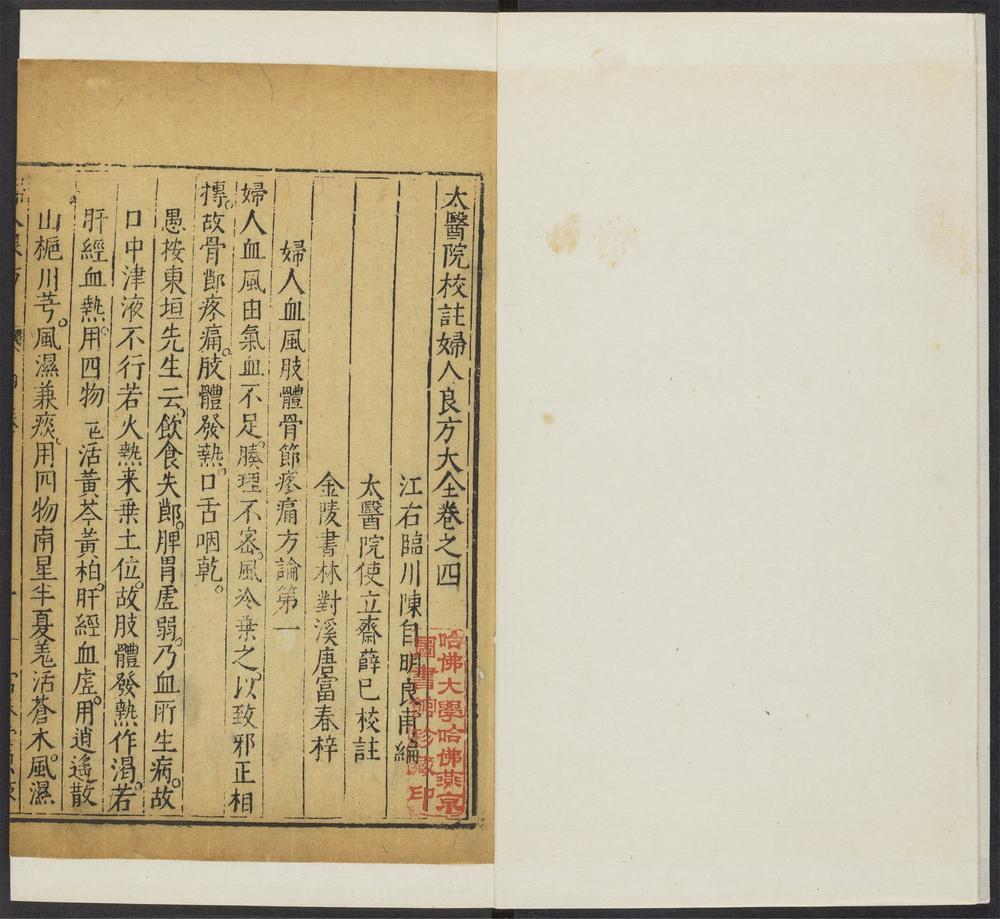 太醫院校註婦人良方大全卷之四
江右臨川陳自明良甫編
太醫院使立齋薛已校註
金陵書林對溪唐富春梓
婦人血風肢體骨節疼痛方論第一
婦人血風由氣血不足。腠理不密。風冷乗之。以致邪正相
搏。故骨郎疼痛。肢體發熱。口舌咽乾。
愚按東垣先生云。飲食失郎。脾胃虛弱。乃血所生病。故
口中津液不行若火熱来乗土位。故肢體發熱作渴。若
肝經血熱。用四物 活黃芩黃柏。肝經血虛。用逍遙散
山梔川芎。風濕兼痰。用四物南星半夏羗活蒼木。風濕
哈佛大學哈佛燕京
圖書館珍藏印